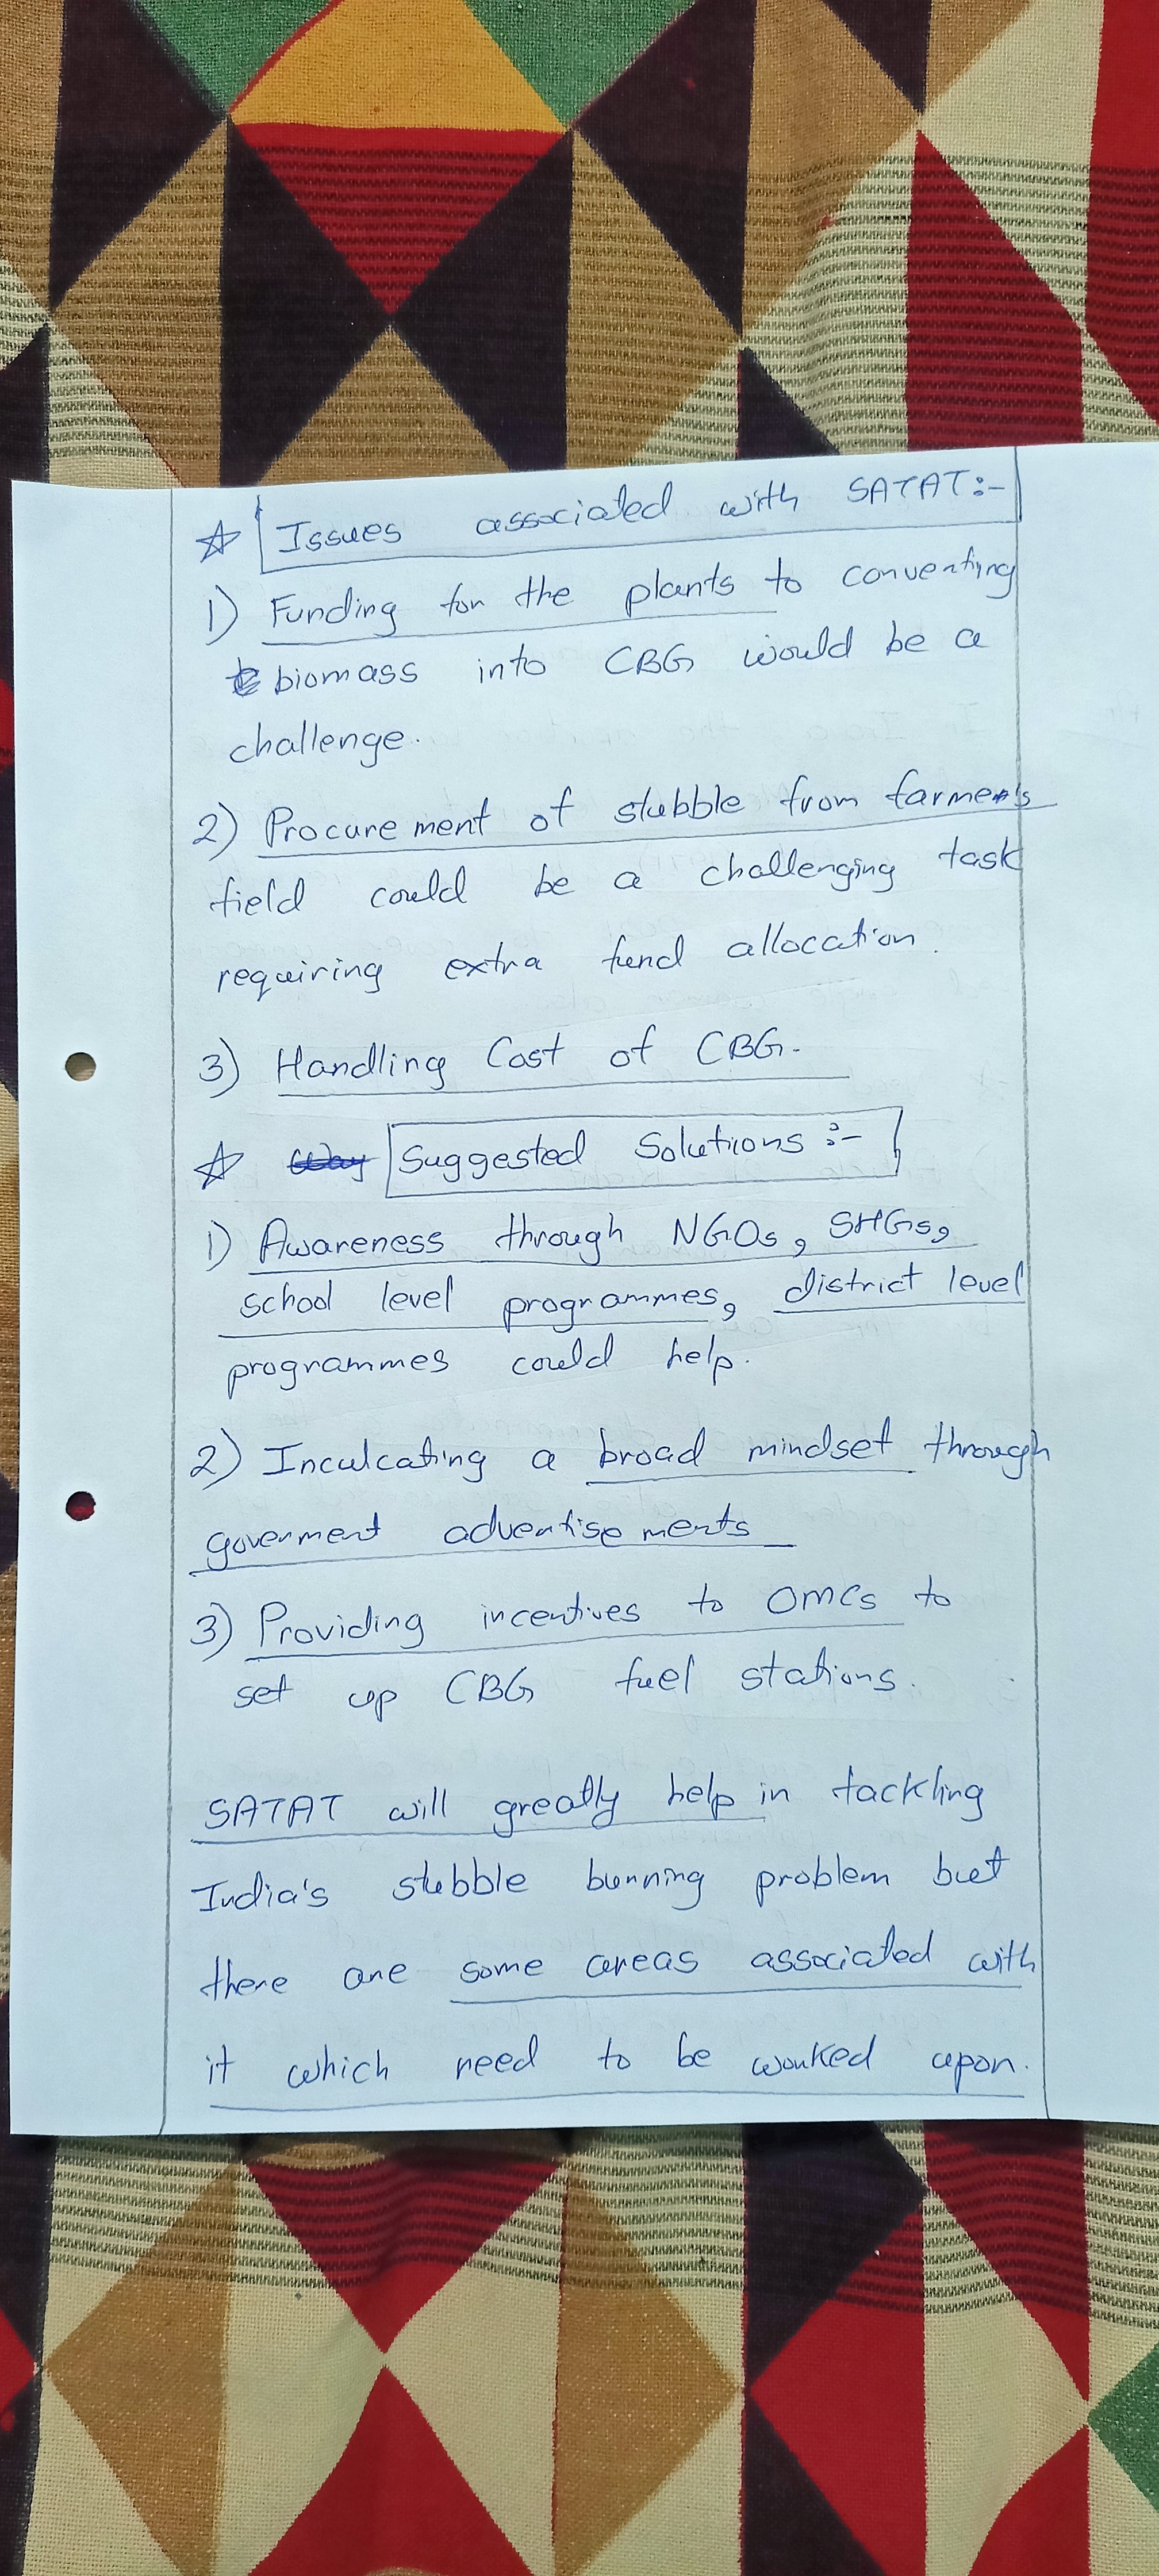 ☆ Issues associated with SATAT:-
1) Funding for the plants to converting
biomass into CBG would be a
challenge.
2) Procurement of stubble from farmer's
field could be a challenging task
requiring extra fund allocation.
3) Handling Cost of CBG.
☆ Way Suggested Solutions:-
1) Awareness through NGOs, SHGs,
school level programmes, district level
programmes could help.
2) Inculcating a broad mindset through
goverment advertisements
3) Providing incentives to OMCs to
set up CBG fuel stations.
SATAT will greatly help in tackling
India's stubble burning problem but
there are some areas associated with
it which need to be worked upon.